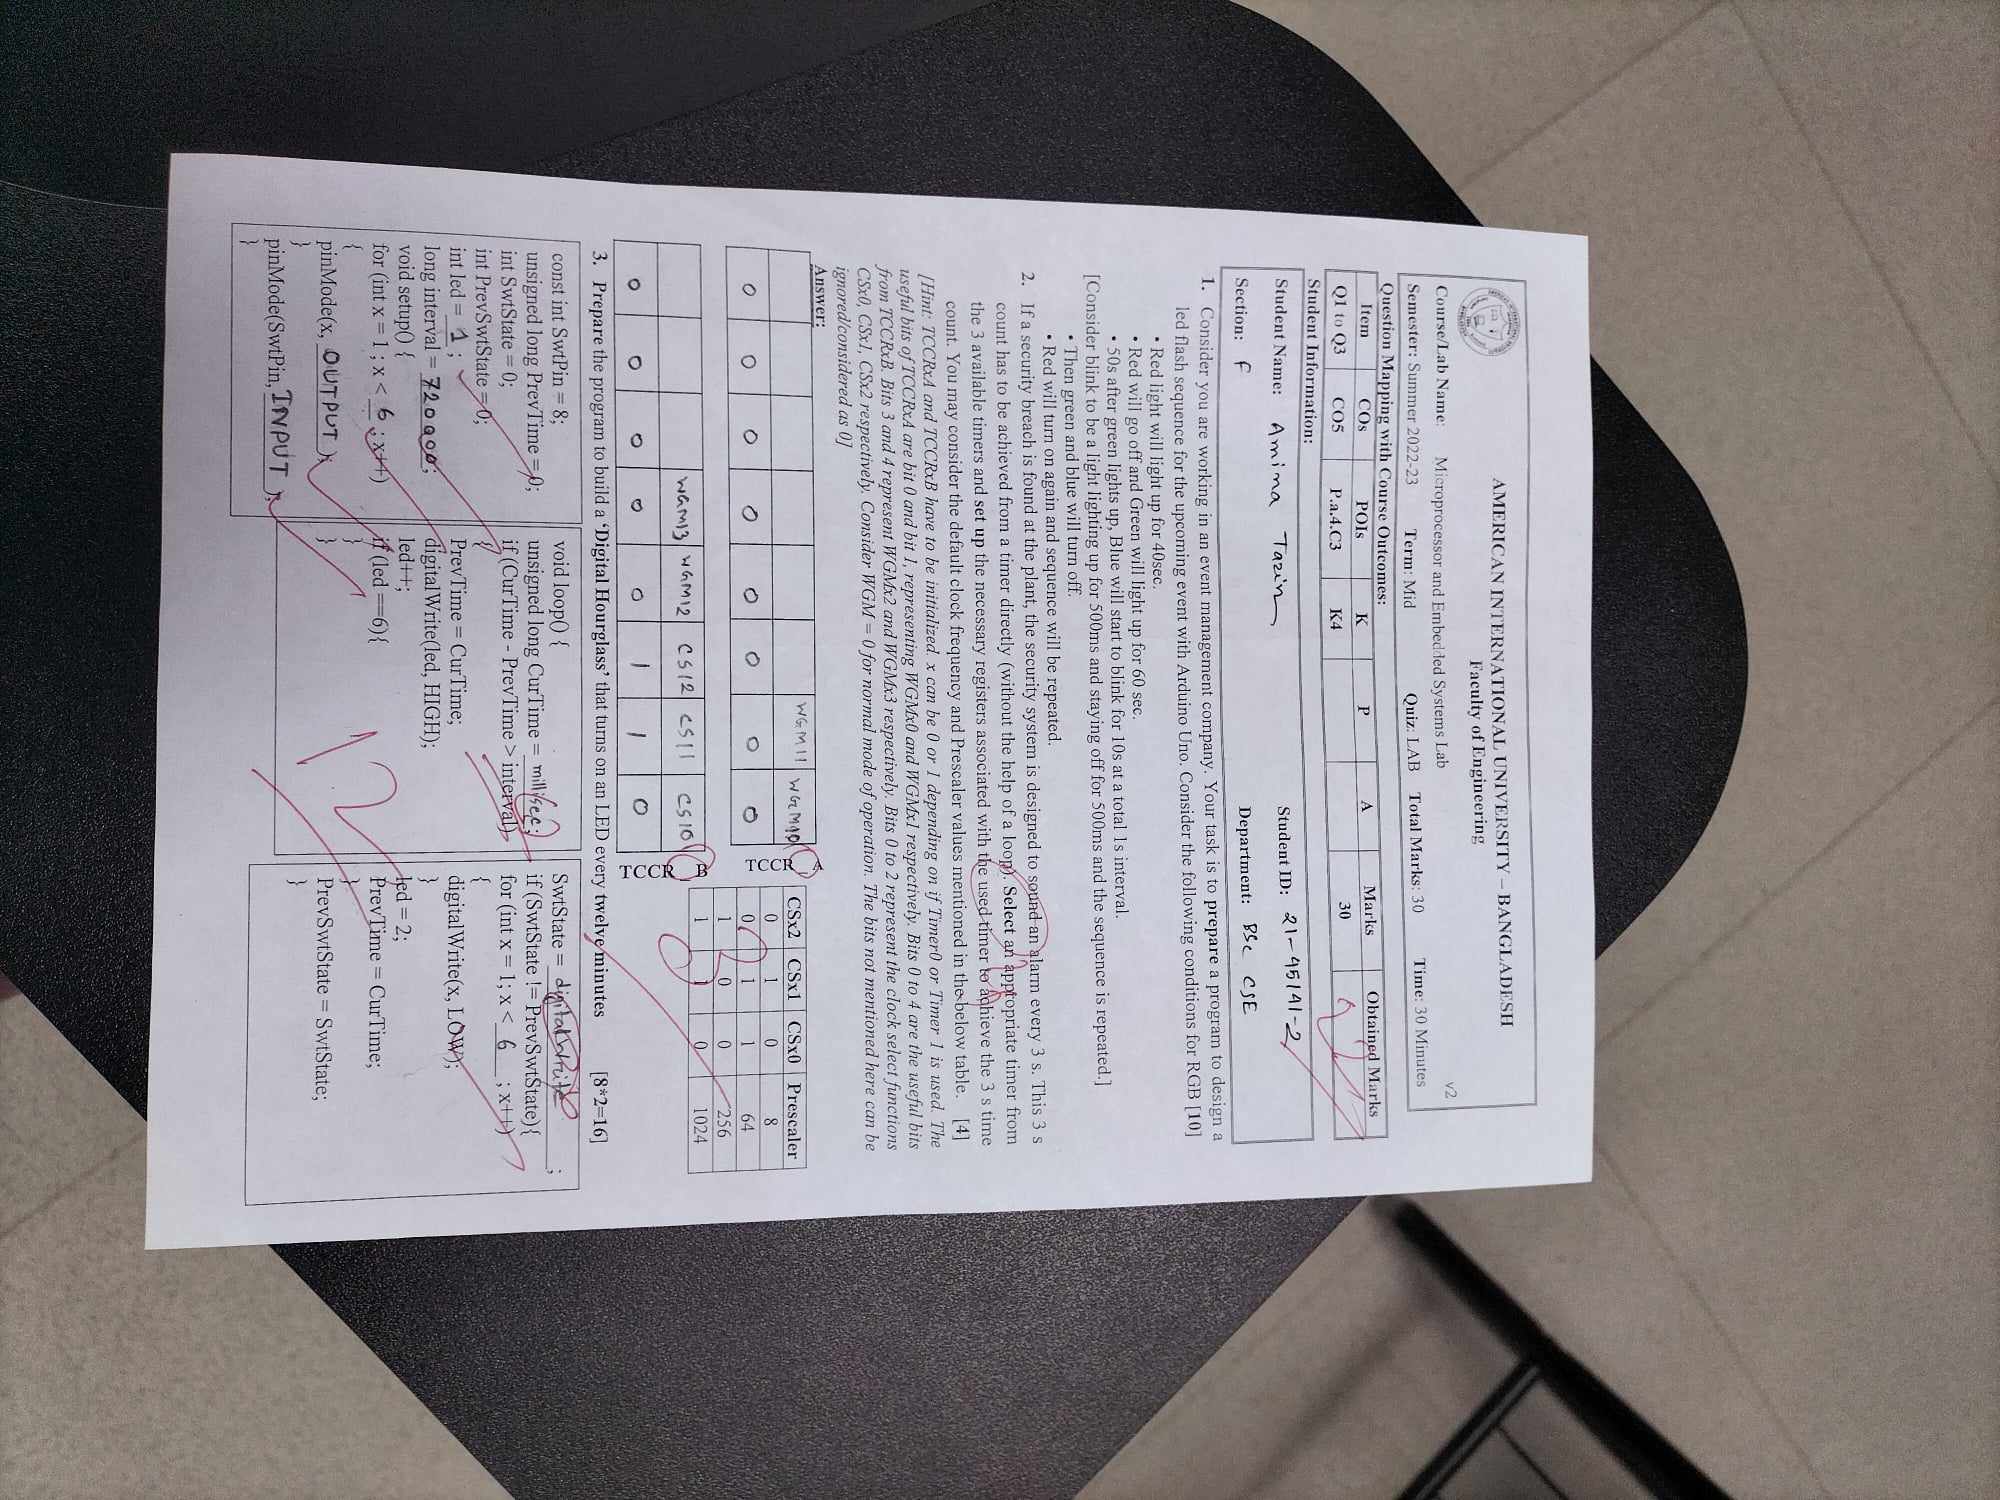 AMERICAN INTERNATIONAL UNIVERSITY – BANGLADESH
Faculty of Engineering
Course/Lab Name: Microprocessor and Embedded Systems Lab v2
Semester: Summer 2022-23 Term: Mid Quiz: LAB Total Marks: 30 Time: 30 Minutes
Question Mapping with Course Outcomes:
Item COs POIs K P A Marks Obtained Marks
Q1 to Q3 CO5 P.a.4.C3 K4 30
Student Information:
Student Name: Amina Tazin Student ID: 21-45141-2
Section: F Department: BSc CSE
1. Consider you are working in an event management company. Your task is to prepare a program to design a
led flash sequence for the upcoming event with Arduino Uno. Consider the following conditions for RGB [10]
• Red light will light up for 40sec.
• Red will go off and Green will light up for 60 sec.
• 50s after green lights up, Blue will start to blink for 10s at a total 1s interval.
[Consider blink to be a light lighting up for 500ms and staying off for 500ms and the sequence is repeated.]
• Then green and blue will turn off.
• Red will turn on again and sequence will be repeated.
2. If a security breach is found at the plant, the security system is designed to sound an alarm every 3 s. This 3 s
count has to be achieved from a timer directly (without the help of a loop). Select an appropriate timer from
the 3 available timers and set up the necessary registers associated with the used timer to achieve the 3 s time
count. You may consider the default clock frequency and Prescaler values mentioned in the below table. [4]
[Hint: TCCRxA and TCCRxB have to be initialized. x can be 0 or 1 depending on if Timer0 or Timer 1 is used. The
useful bits of TCCRxA are bit 0 and bit 1, representing WGMx0 and WGMx1 respectively. Bits 0 to 4 are the useful bits
from TCCRxB. Bits 3 and 4 represent WGMx2 and WGMx3 respectively. Bits 0 to 2 represent the clock select functions
CSx0, CSx1, CSx2 respectively. Consider WGM = 0 for normal mode of operation. The bits not mentioned here can be
ignored/considered as 0]
Answer:
WGM11 WGM10
0 0 0 0 0 0 0 0
TCCR_A
WGM13 WGM12 CS12 CS11 CS10
0 0 0 0 0 1 1 0
TCCR_B
CSx2 CSx1 CSx0 Prescaler
0 1 0 8
0 1 1 64
1 0 0 256
1 1 0 1024
3. Prepare the program to build a ‘Digital Hourglass’ that turns on an LED every twelve minutes [8*2=16]
const int SwtPin = 8;
unsigned long PrevTime = 0;
int SwtState = 0;
int PrevSwtState = 0;
int led = 1 ;
long interval = 720000;
void setup() {
for (int x = 1 ; x < 6 ; x++)
{
pinMode(x, OUTPUT );
}
pinMode(SwtPin, INPUT );
}
void loop() {
unsigned long CurTime = millisec;
if (CurTime - PrevTime > interval)
{
PrevTime = CurTime;
digitalWrite(led, HIGH);
led++;
if (led ==6){
}
}
SwtState = digitalWrite ;
if (SwtState != PrevSwtState){
for (int x = 1; x < 6 ; x++)
{
digitalWrite(x, LOW);
}
led = 2;
PrevTime = CurTime;
}
PrevSwtState = SwtState;
}
12